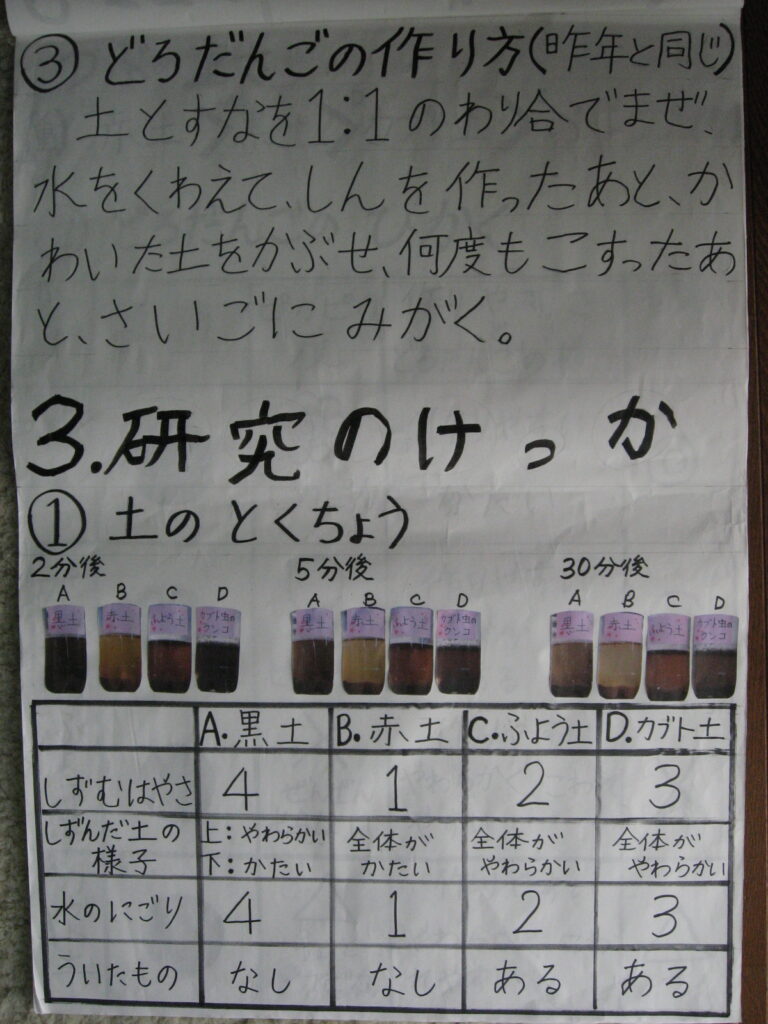 ③ どろだんごの作り方(昨年と同じ)
土とすなを1:1のわり合でまぜ、
水をくわえて、しんを作ったあと、か
わいた土をかぶせ、何度もこすったあ
と、さいごにみがく。
3.研究のけっか
① 土のとくちょう
2分後 5分後 30分後
A B C D A B C D A B C D
黒土 赤土 ふよう土 カブト虫のウンコ 黒土 赤土 ふよう土 カブト虫のウンコ 黒土 赤土 ふよう土 カブト虫のウンコ
A.黒土 B.赤土 C.ふよう土 D.カブト土
しずむはやさ 4 1 2 3
しずんだ土の 上:やわらかい 全体が 全体が 全体が
様子 下:かたい かたい やわらかい やわらかい
水のにごり 4 1 2 3
ういたもの なし なし ある ある